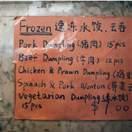 Frozen 速冻水饺,云吞
Pork Dumpling (猪肉) 15 pcs
Beef Dumpling (牛肉) 12 pcs
Chicken & Prawn Dumpling
Spanish & Pork Wonton
Vegetarian Dumpling
15 pcs $ 00